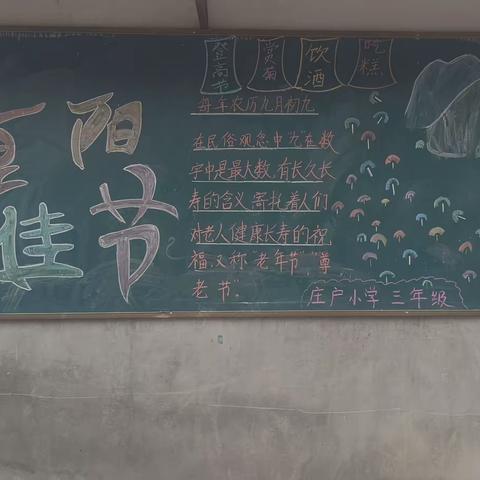 阳
佳节
登高节
赏菊
饮酒
吃糕
每年农历九月初九
在民俗观念中"九"在数
字中是最大数,有长久长
寿的含义,寄托着人们
对老人健康长寿的祝
福,又称"老年节""尊
老节"。
庄户小学三年级